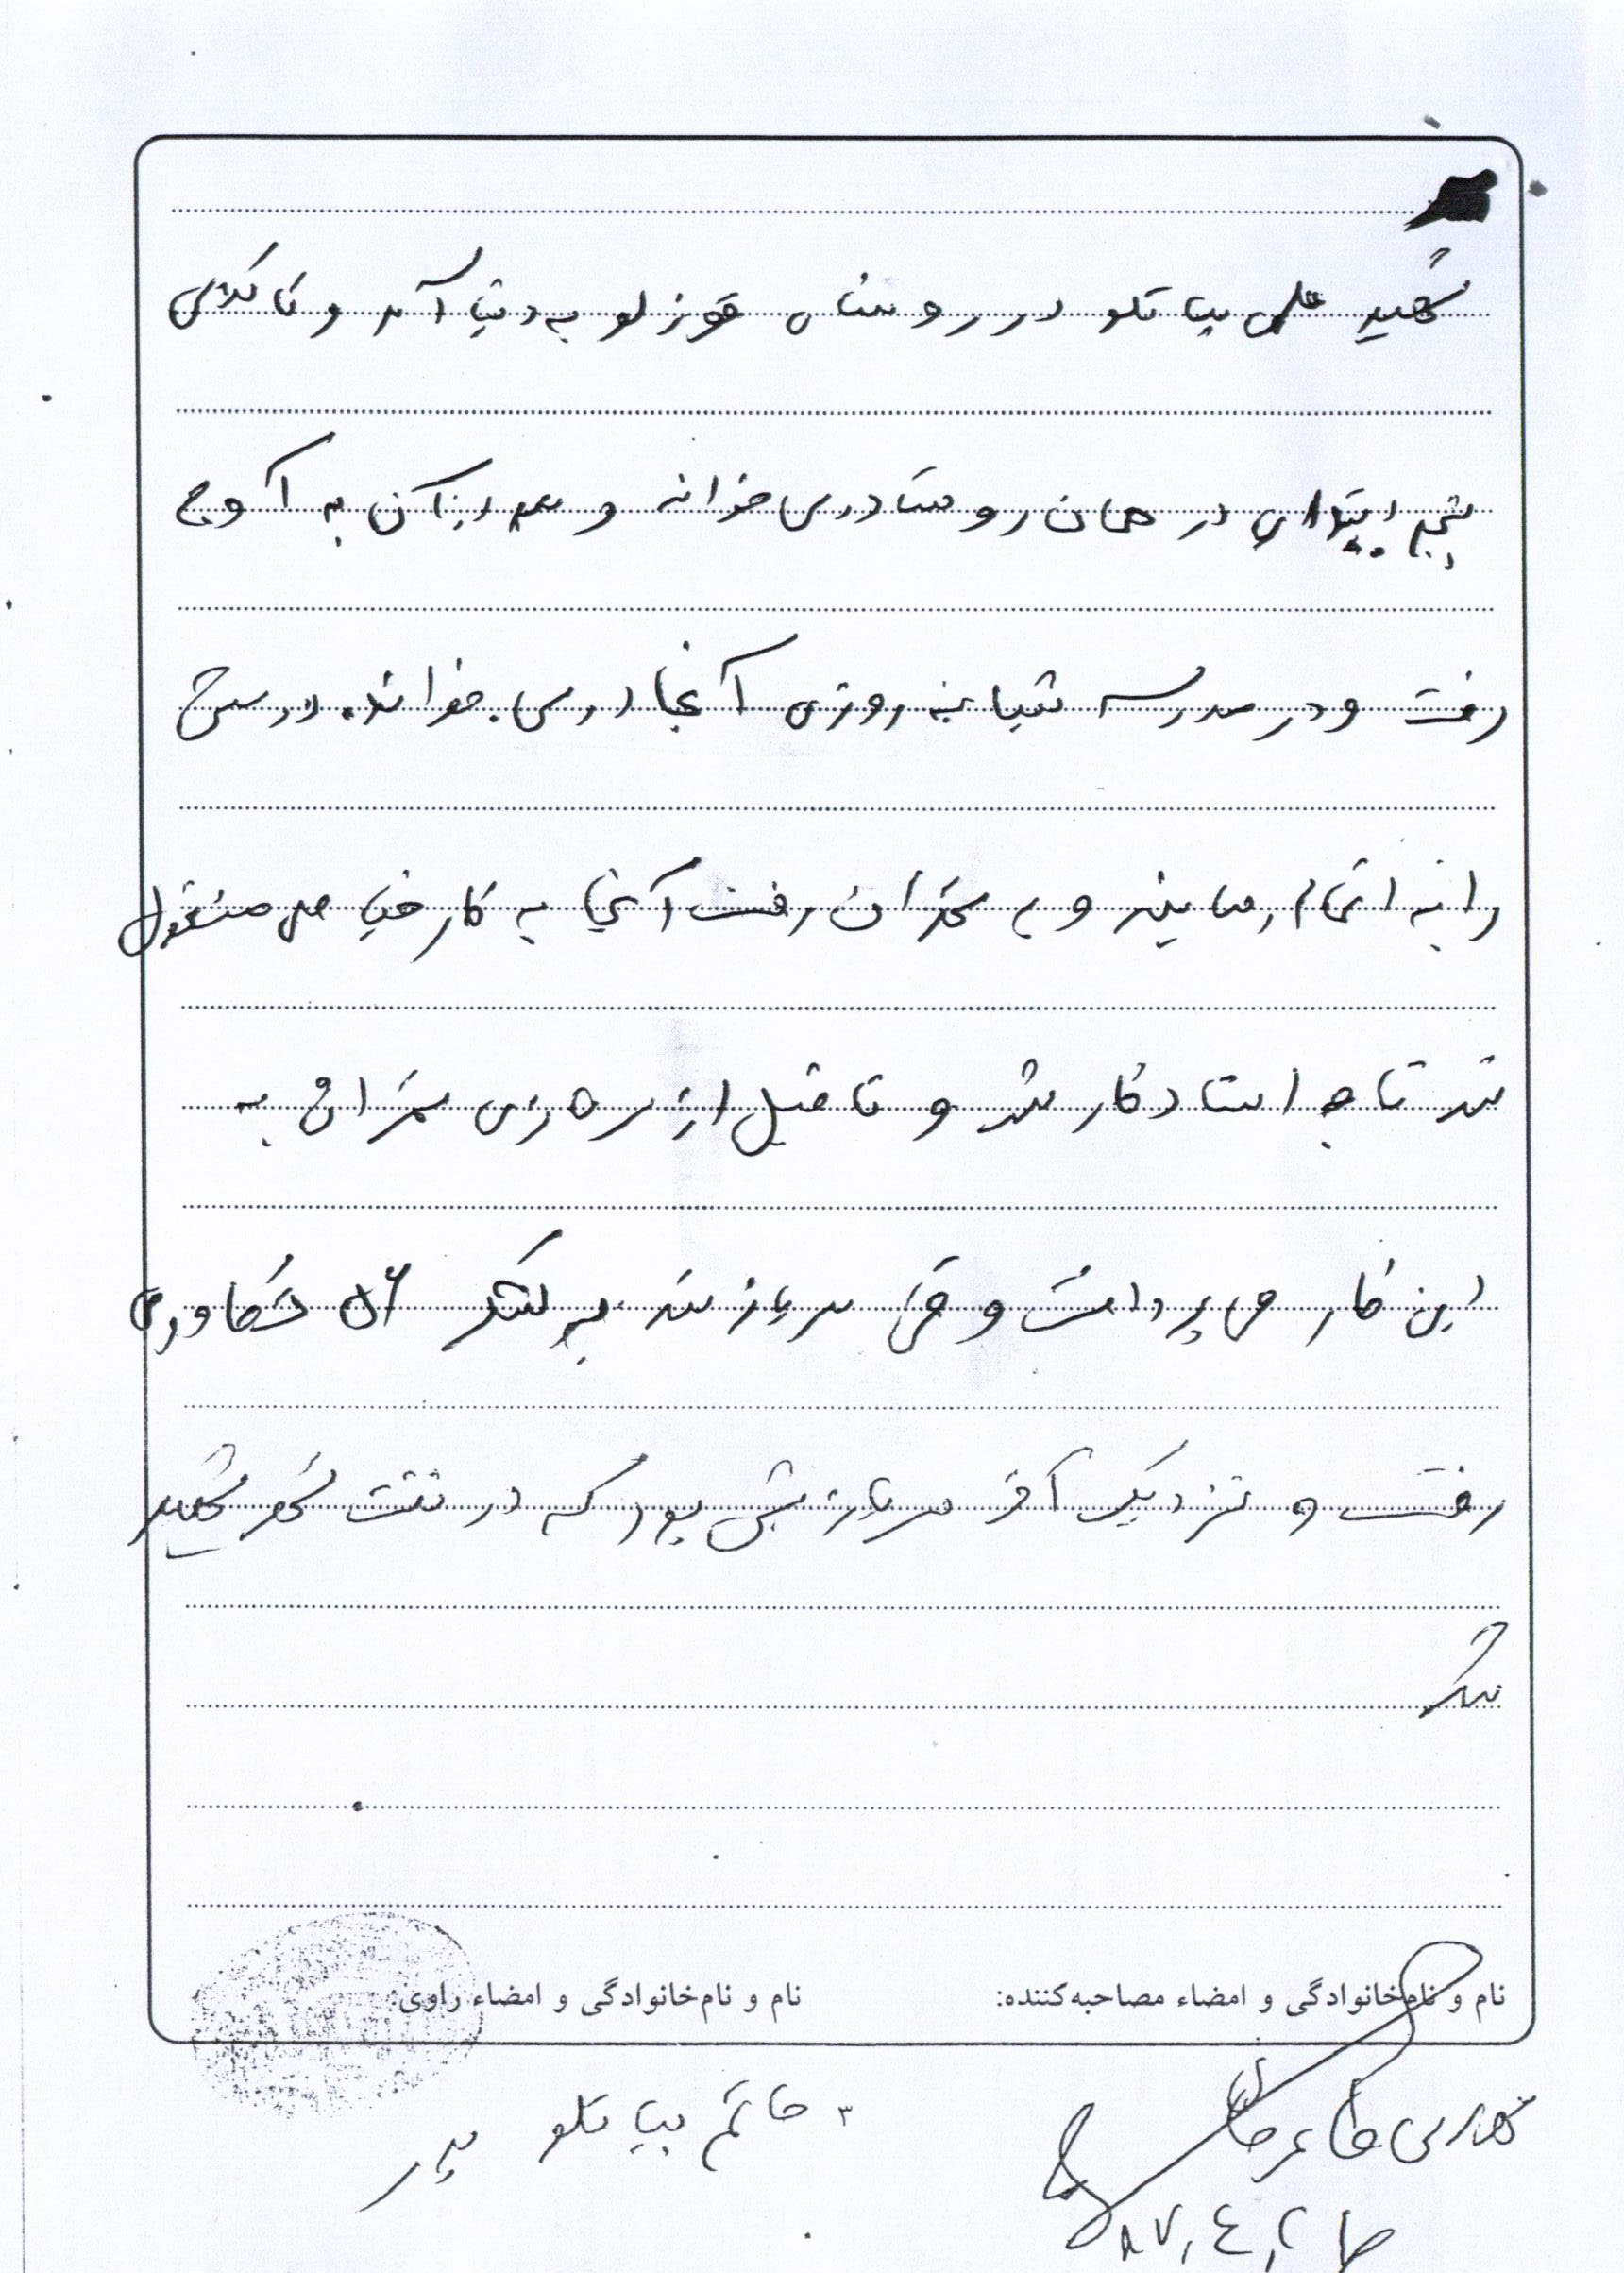 شهید علی بیاتلو در روستای قوزلو به دنیا آمد و تا کلاس
پنجم ابتدای در همان روستا درس خواند و بعد از آن به آوج
رفت و در مدرسه شبانه روزی آنجا درس خواند. درسش
را به اتمام رساند و به تهران رفت آنجا به کار خیاطی مشغول
شد تا جه استاد کار شد و تا قبل از سربازی به
این کار می پرداخت وقتی سرباز شد به لشکر ۵۶
رفت و نزدیک آخر سربازیش بود که در نفت شهر شهید
شد
نام و نام‌خانوادگی و امضاء مصاحبه‌کننده:
نام و نام‌خانوادگی و امضاء راوی:
حاتم بیاتلو پدر